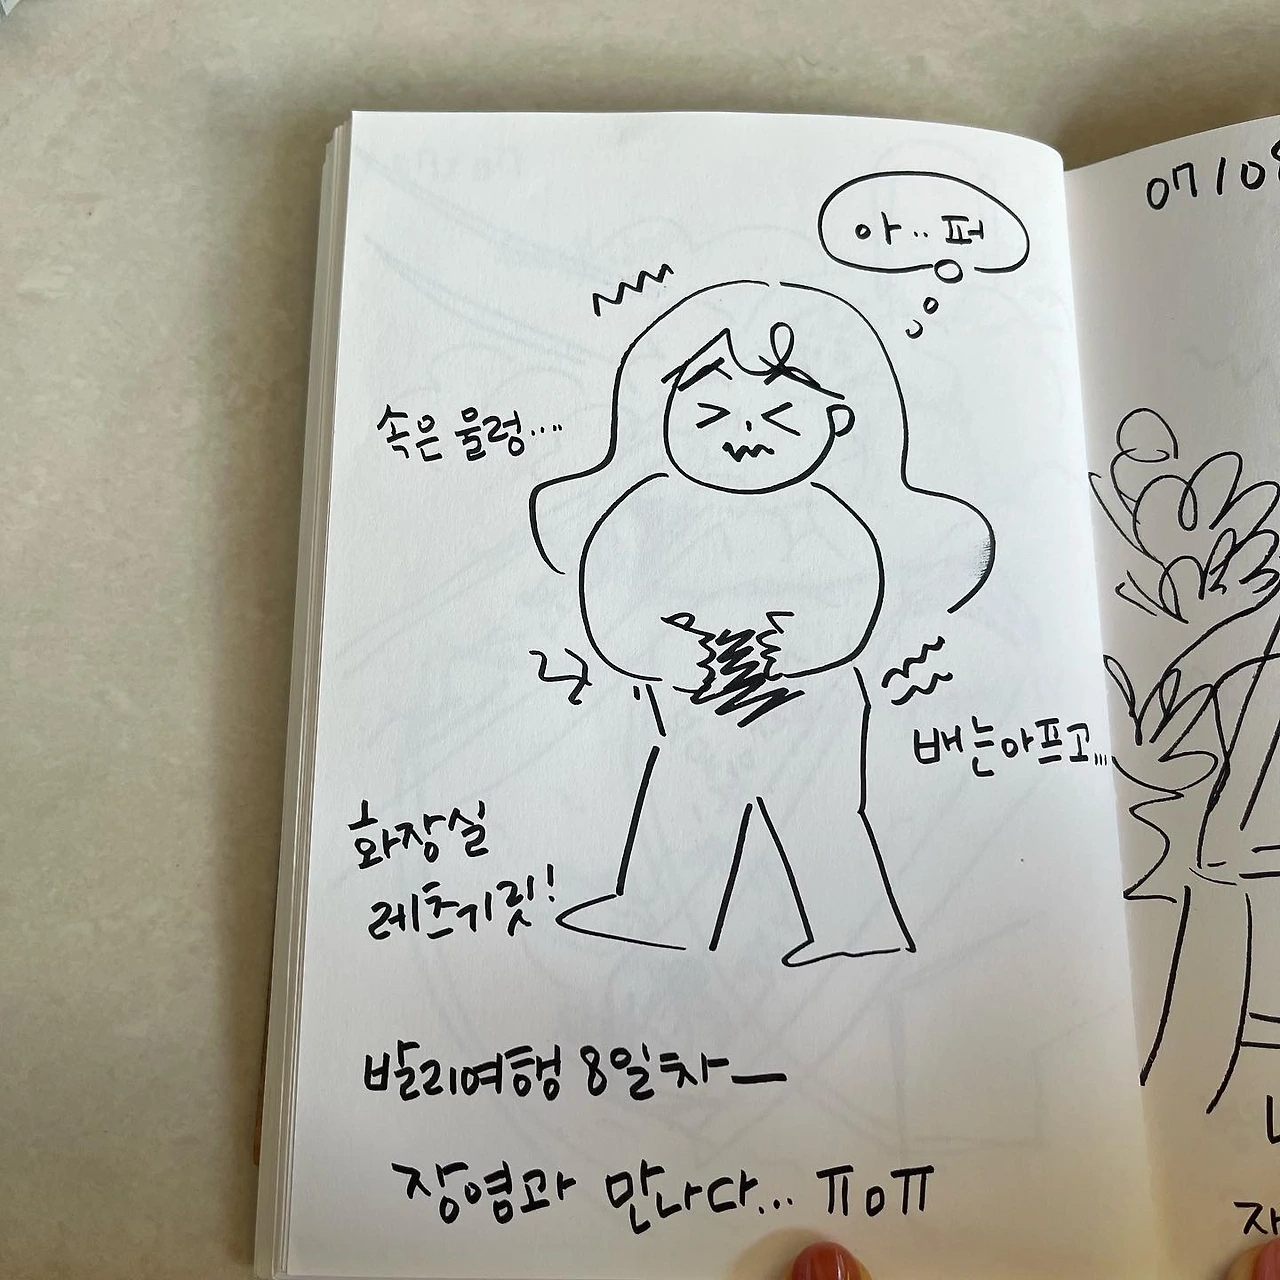 아.. 퍼
속은 울렁....
배는아프고...
화장실
레츠기릿!
발리여행 8일차—
장염과 만나다... ㅠㅇㅠ
07/08